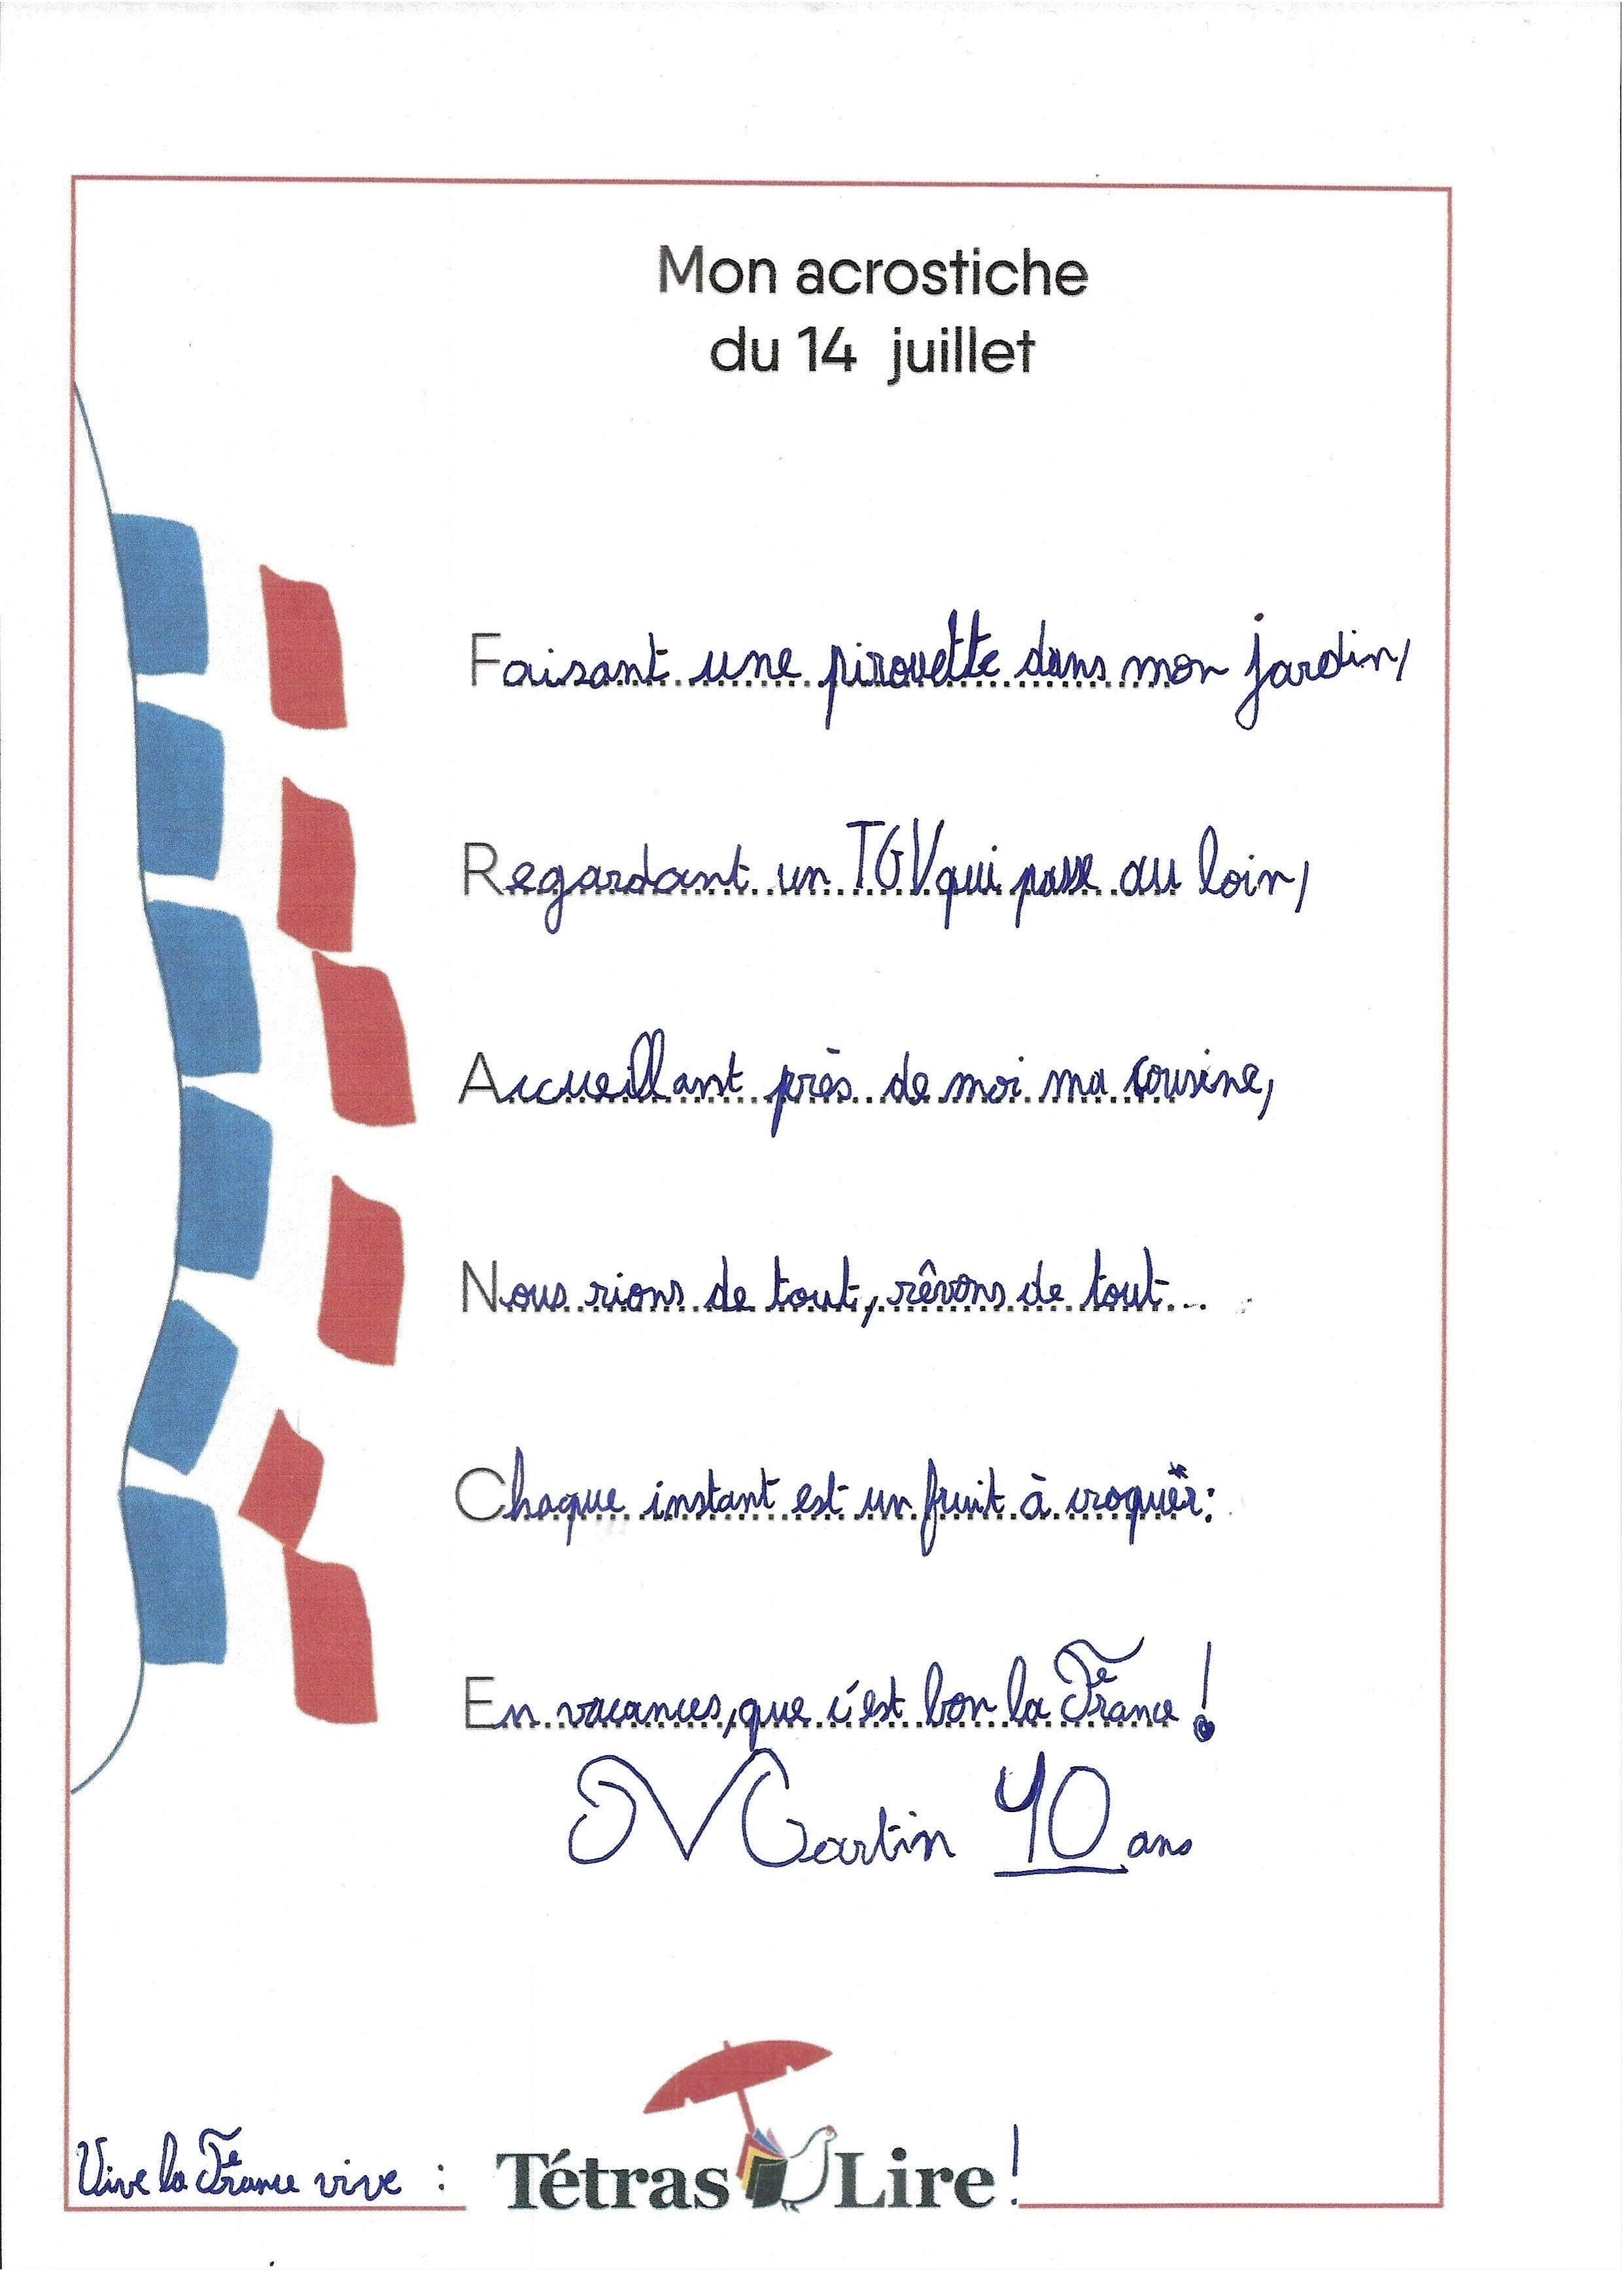 Mon acrostiche
du 14 juillet
Faisant une pirouette dans mon jardin,
Regardant un TGV qui passe au loin,
Accueillant près de moi ma cousine,
Nous rions de tout, rêvons de tout...
Chaque instant est un fruit à croquer:
En vacances, que c'est bon la France !
Martin 10 ans
Vive la France vive : Tétras Lire !